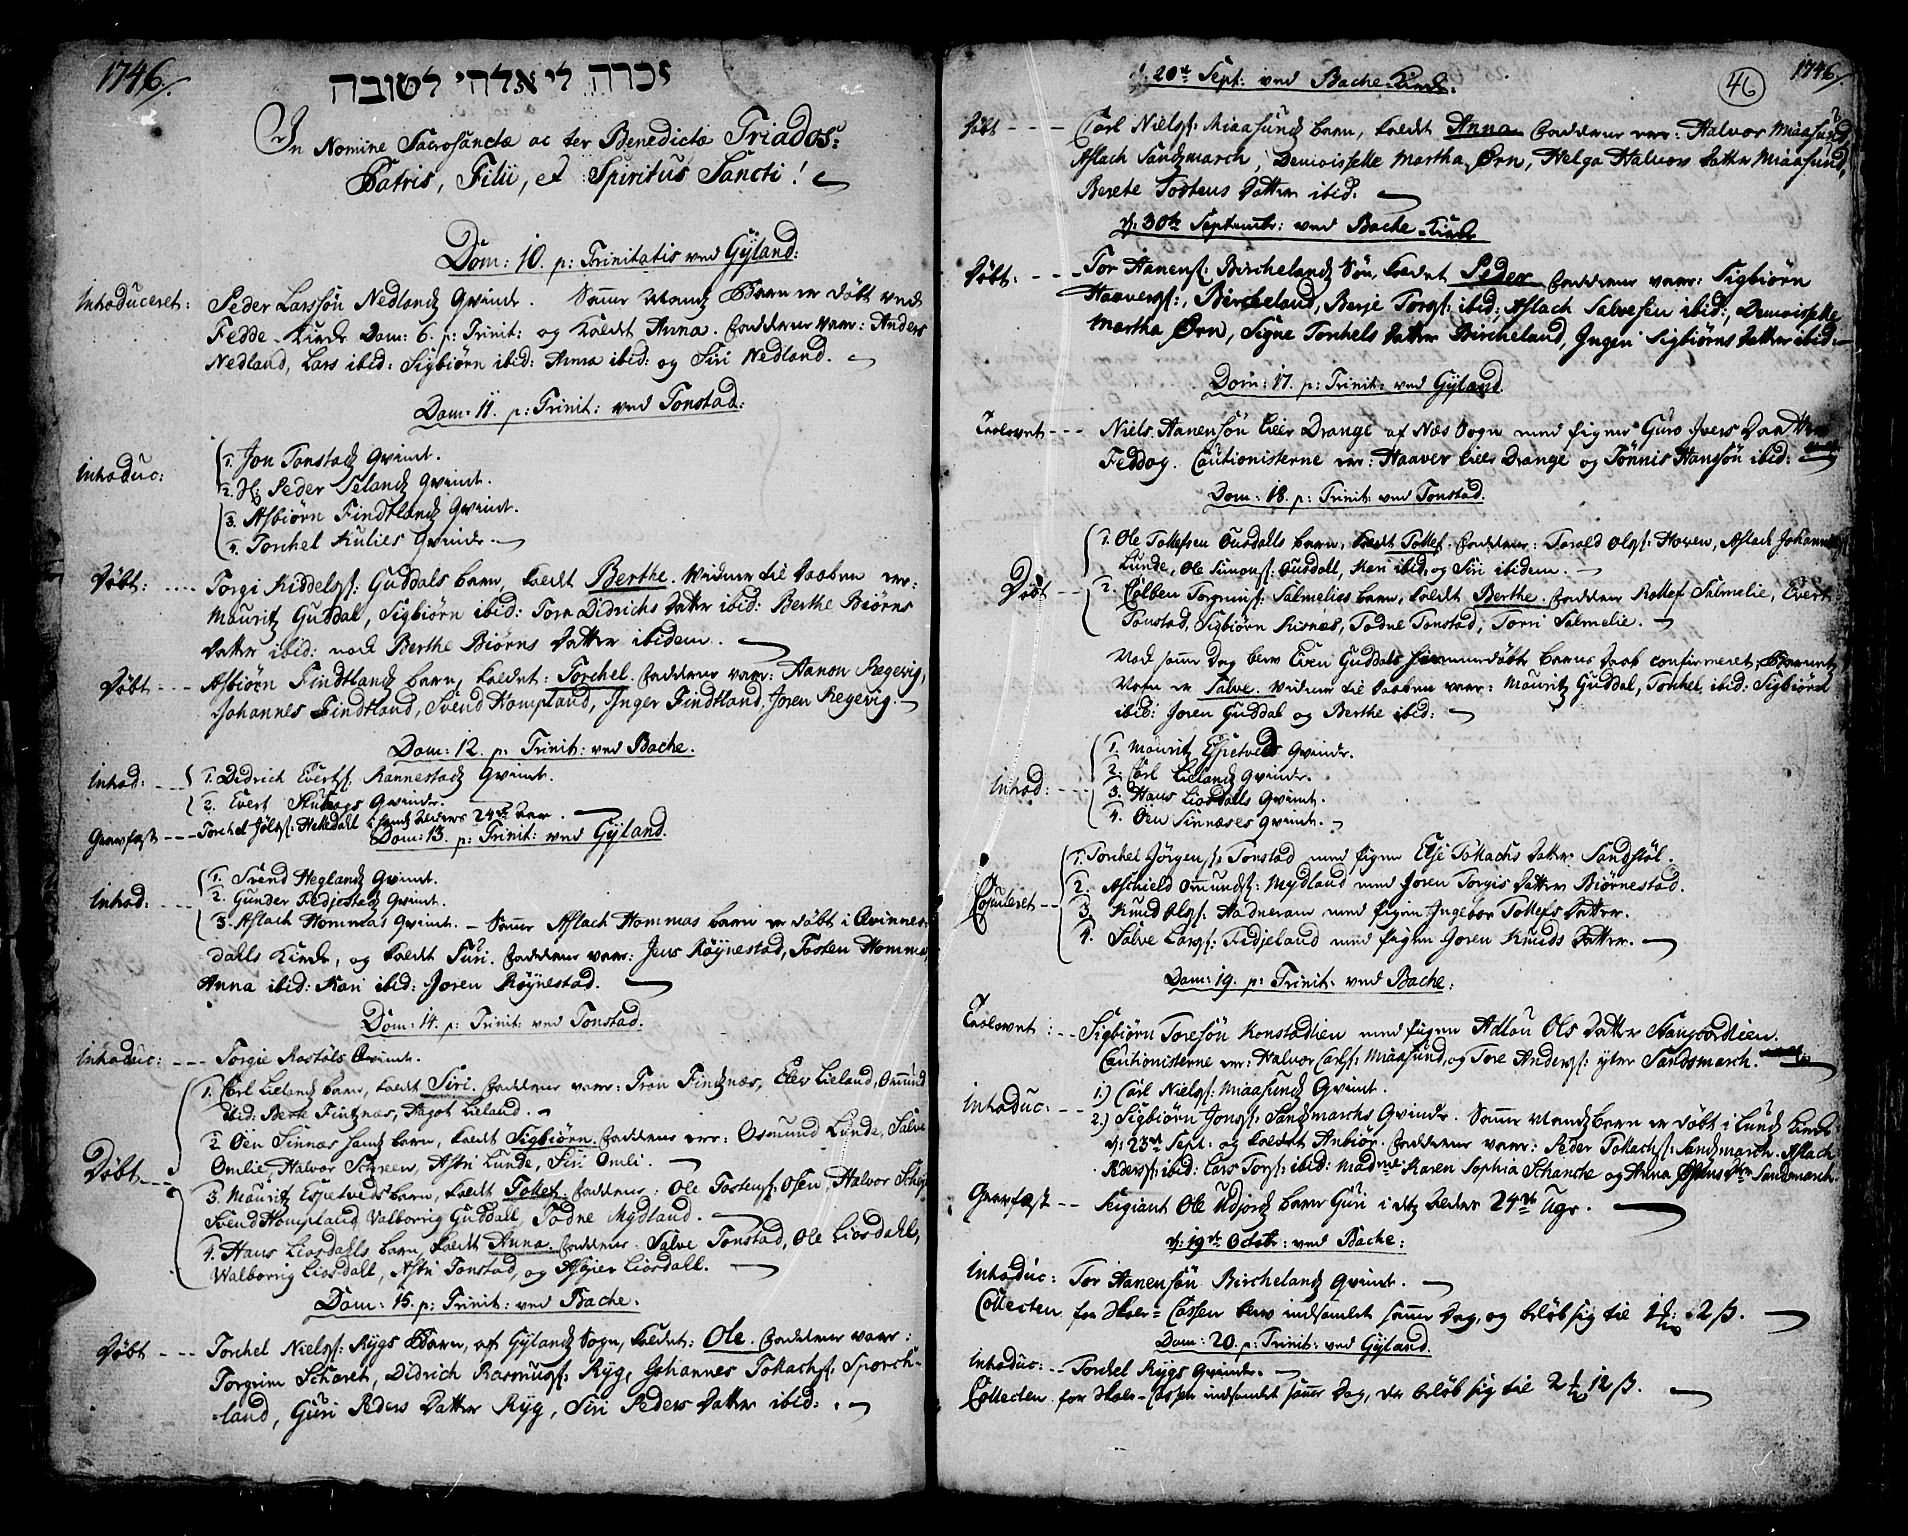 1746/.
זכרה לי אלהי לטובה
In Nomine Sacrosanctæ ac ter Benedictæ Triados:
Patris, Filii, et Spiritus Sancti!
Dom: 10. p: Trinitatis ved Gÿland:
Introduceret: Peder Larssøn Nedlandz Qvinde. Samme Mandz Barn er døbt ved
Fedde-Kirche Dom: 6. p: Trinit: og kaldt Anna. Faddere vare: Anders
Nedland, Lars ibid: Sigbiørn ibid: Anna ibid: og Siri Nedland.
Dom: 11. p: Trinit: ved Tonstad:
Introduc:
1. Jon Tonstadz Qvinde.
2. H: Peder Selandz Qvinde.
3. Asbiørn Findtlandz Qvinde.
4. Torchel Kulies Qvinde.
Døbt: Torgi Kiddelss: Guddals barn, kaldt Berthe. Vidner til Daaben var:
Mauritz Guddal, Sigbiørn ibid: Torn Didrichs Datter ibid: Berthe Biørns
Datter ibid: nock Berthe Biørns Datter ibidem.
Døbt: Asbiørn Findtlandz barn, kaldet: Torchel. Faddere vare: Aanon Regevig,
Johannes Findtland, Svend Hompland, Inger Findtland, Joren Regevig.
Dom: 12. p: Trinit: ved Bache.
Introd:
1. Didrich Evertss: Rannestadz Qvinde.
2. Evert Qvinde.
Gravfæst Torchel Heltdall i sandz Alders 24de aar.
Dom: 13. p: Trinit: ved Gÿland.
Introd:
1. Svend Heglandz Qvinde.
2. Gunder Fedjestedz Qvinde.
3. Aslach Hommas Qvinde. Samme Aslach Hommas barn er døbt i Qvinnes-
dalls Kirche, og kaldt Turi. Faddere vare: Jens Røÿnestad, Tosten Homme,
Anna ibid: Kari ibid: Joren Røÿnestad.
Dom: 14. p: Trinit: ved Tonstad.
Introduc: Torgie Rostøls Qvinde.
Døbt
1. Carl Lielandz barn, kaldt Siri. Faddere vare: Tron Findznæs, Elev Lieland, Omund
ibid: Berte Fintznæs, Aagot Lieland.
2. Øen Sinnæs barn, kaldt Sigbiørn. Faddere var: Osmund Lunde, Salve
Omlie, Halvor Schreen, Astri Lunde, Siri Omli.
3. Mauritz Espetveds barn, kaldt Tollef. Faddere: Ole Tostenss: Osen, Halvor
Svend Hompland, Valborrig Guddall, Todne Mÿdland.
4. Hans Liosdahls barn, kaldt Anna. Faddere: Salve Tonstad, Ole Liosdahl,
Walborrig Liosdall, Astri Tonstad, og Asgier Liosdall.
Dom: 15. p: Trinit: ved Bache.
Døbt Torchel Nielss: Rÿgs Barn, af Gÿlandz Sogn, kaldet: Ole. Faddere vare:
Torgrim Scharet, Didrich Rasmuss: Rÿg, Johannes Tollachss: Sporch-
land, Guri Peders Datter Rÿg, Siri Peders Datter ibid:
1746/.
46
d. 20de Sept: ved Bache-Kirche.
Døbt Carl Nielss: Miaasundz barn, kaldt Anna Faddere var: Halvor Miaasund,
Aslach Sandzmarch, Demoiselle Martha Ørn, Helga Halvors Datter Miaasund,
Berete Tostens Datter ibid.
d: 30te Septembr: ved Bache-Kirche
Døbt: Tor Aanenss: Birchelandz Søn, kaldet Peder Faddere vare: Sigbiørn
Haaverss: Bircheland, Berje Torss: ibid: Aslach Salvesen ibid: Demoiselle
Martha Ørn, Signe Torchels Datter Bircheland, Ingeri Sigbiørns Datter ibid.
Dom: 17. p: Trinit: ved Gÿland.
Trolovet Niels Aanensøn Lille Drange af Næs Sogn med Pigen Guro Ivers Daatter
Feddog. Cautionisterne var: Haaver Lille Drange og Tønnis Hansøn ibid:
Dom: 18. p: Trinit: ved Tonstad.
Døbt
1. Ole Tollefsen Ousdalls barn, kaldt Tollef. Faddere: Torald Olss: Hoven, Aslach Johannes
Lunde, Ole Simonss: Ousdall, Kari ibid, og Siri ibidem.
2. Colben Torgrimss: Salmelies barn, kaldt Berthe. Faddere Rollef Salmelie, Evert
Tonstad, Sigbiørn Risnæs, Todne Tonstad, Torri Salmelie.
Nock samme dag blev Even Guddals hiemmedøbt barns Daab confirmeret, Barnets
Nafn er Salve. Vidner til Daaben vare: Mauritz Guddal, Torchel ibid: Sigbiørn
ibid: Joren Guddal og Berthe ibid:
Introd:
1. Mauritz Espetveds Qvinde.
2. Carl Lielandz Qvinde.
3. Hans Liosdalls Qvinde.
4. Øen Sinnæses Qvinde.
Copuleret
1. Torchel Jørgenss: Tonstad med Pigen Else Tollachs Datter Sandstøl.
2. Aschield Omundss: Mÿdland med Joren Torgis Datter Biørnestad.
3. Knud Olss: Hadneram med Pigen Ingebor Tollefs Datter.
4. Salve Larss: Fidjeland med Pigen Joren Knuds Datter.
Dom: 19. p: Trinit: ved Bache:
Trolovet: Sigbiørn Toresøn Konstadlien med Pigen Adlau Ols Datter Stangbordlien.
Cautionisterne var: Halvor Carlss: Miaasund, og Tore Anderss: ÿtre Sandsmarch.
Introduc:
1.) Carl Nielss: Miaasundz Qvinde.
2.) Sigbiørn Jonss: Sandzmarchs Qvinde. Samme Mandz barn er døbt i Lundz Kirche
d: 23de Sept: og kaldet Anbiør. Faddere vare: Peder Tollachss: Sandzmarch. Aslach
Pederss: ibid: Lars Torss: ibid: Madme Karen Sophia Schanche og Anna Datter Sandsmarch.
Gravfæst Sergiant Ole Udjordz barn Guri i detz Alders 24de Uge.
d: 19de Octobr: ved Bache:
Introduc: Tor Aanensøn Birchelandz Qvinde.
Collecten for Skole-Cassen blev indsamlet samme Dag, og beløb sig til 1 2 ß.
Dom: 20. p: Trinit: ved Gÿland.
Introduc: Torchel Rÿgs Qvinde.
Collecten for Skole-Cassen indsamlet samme Dag, da beløb sig til 2 12 ß.